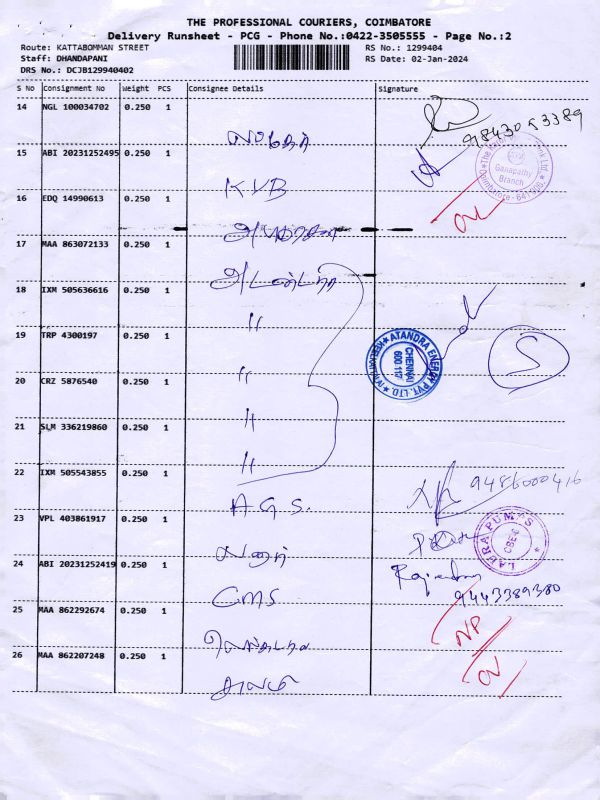 THE PROFESSIONAL COURIERS, COIMBATORE
Delivery Runsheet - PCG - Phone No.:0422-3505555 - Page No.:2
Route: KATTABOMMAN STREET
RS No.: 1299404
Staff: DHANDAPANI
RS Date: 02-Jan-2024
DRS No.: DCJB129940402
S No Consignment No Weight PCS Consignee Details Signature
14 NGL 100034702 0.250 1
9843053389
15 ABI 20231252495 0.250 1
KVB
Ganapathy Branch
16 EDQ 14990613 0.250 1
17 MAA 863072133 0.250 1
18 IXM 505636616 0.250 1
"
19 TRP 4300197 0.250 1
ATANDRA ENERGY PVT. LTD.
CHENNAI
600 117
S
20 CRZ 5876540 0.250 1
"
21 SLM 336219860 0.250 1
"
22 IXM 505543855 0.250 1
"
9486000416
A.G.S.
23 VPL 403861917 0.250 1
LAURA PUMPS
CBE-6
24 ABI 20231252419 0.250 1
CMS
9443389380
25 MAA 862292674 0.250 1
NP
26 MAA 862207248 0.250 1